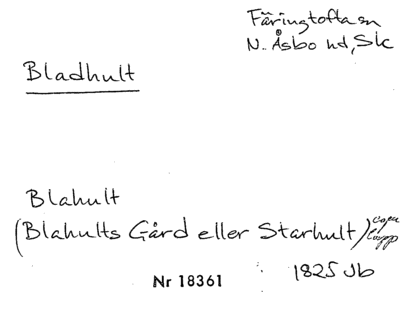 Färingtofta sn
N. Åsbo hd, Sk
Bladhult
Blahult
(Blahults Gård eller Starhult)
1825 Jb
Nr 18361